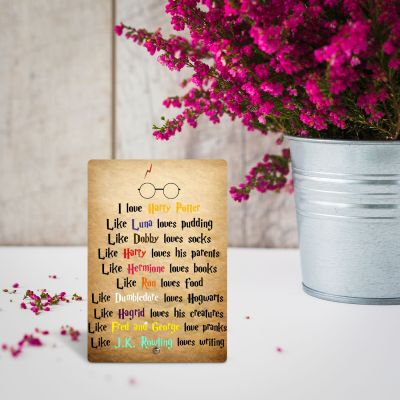 I love Harry Potter
Like Luna loves pudding
Like Dobby loves socks
Like Harry loves his parents
Like Hermione loves books
Like Ron loves food
Like Dumbledore loves Hogwarts
Like Hagrid loves his creatures
Like Fred and George love pranks
Like J.K. Rowling loves writing